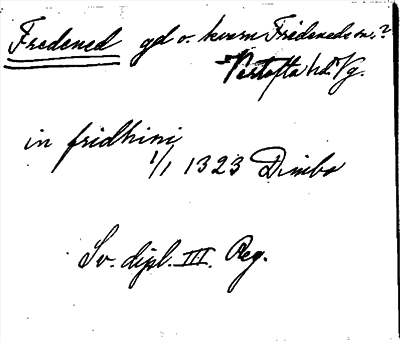 Fredened gd o. kvarn Frideneds sn.?
Vartofta hd. Vg.
in fridhini
1/1 1323 Dimbo
Sv. dipl. III. Reg.